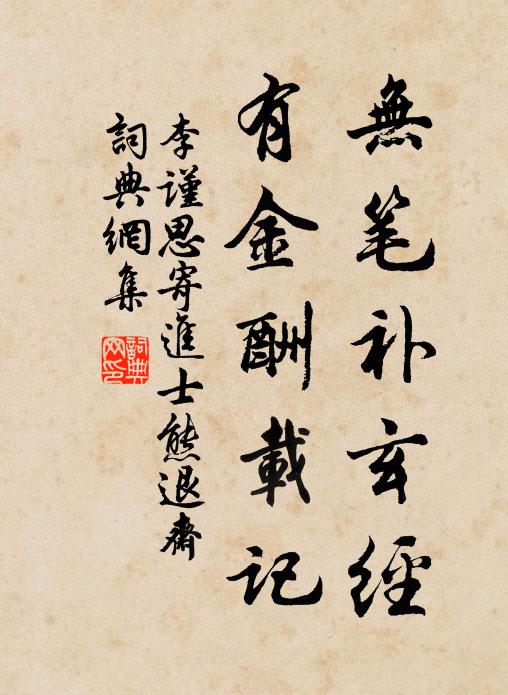 無笔补玄經
有金酬載记
李謹思寄進士熊退齋
詞典網集
詞典网印